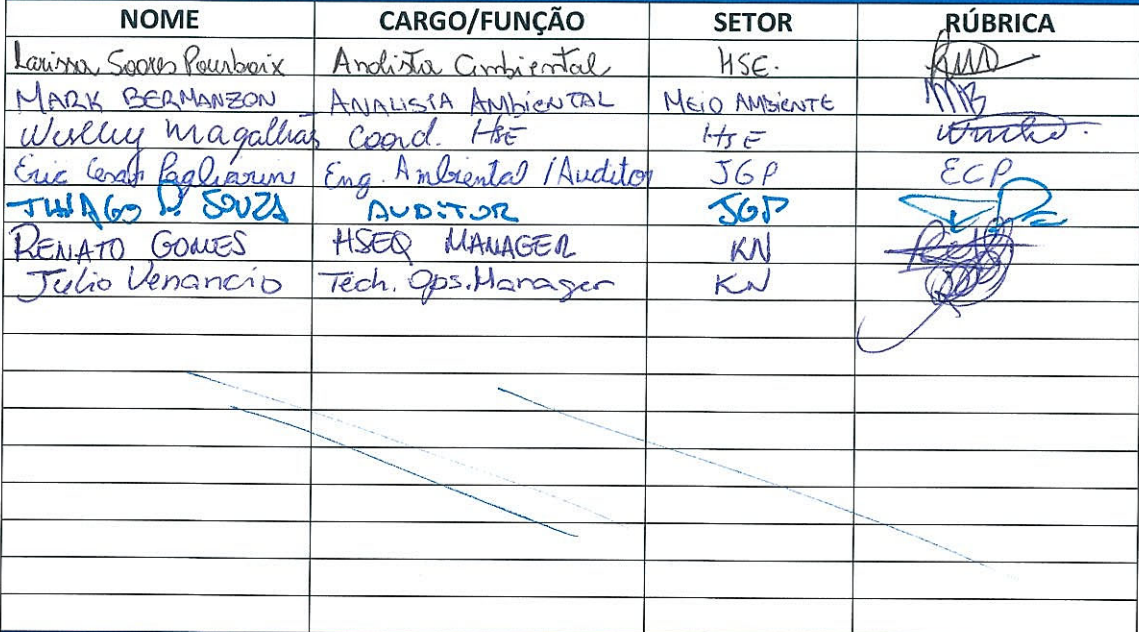 NOME CARGO/FUNÇÃO SETOR RÚBRICA
Larissa Soares Pourbaix Analista Ambiental HSE.
MARK BERMANZON ANALISTA AMBIENTAL MEIO AMBIENTE MB
Weslley Magalhães Coord. HSE HSE
Eric Cesar Pagliarini Eng. Ambiental / Auditor JGP ECP
THIAGO D. SOUZA AUDITOR JGP
RENATO GOMES HSEQ MANAGER KN
Julio Venancio Tech. Ops. Manager KN